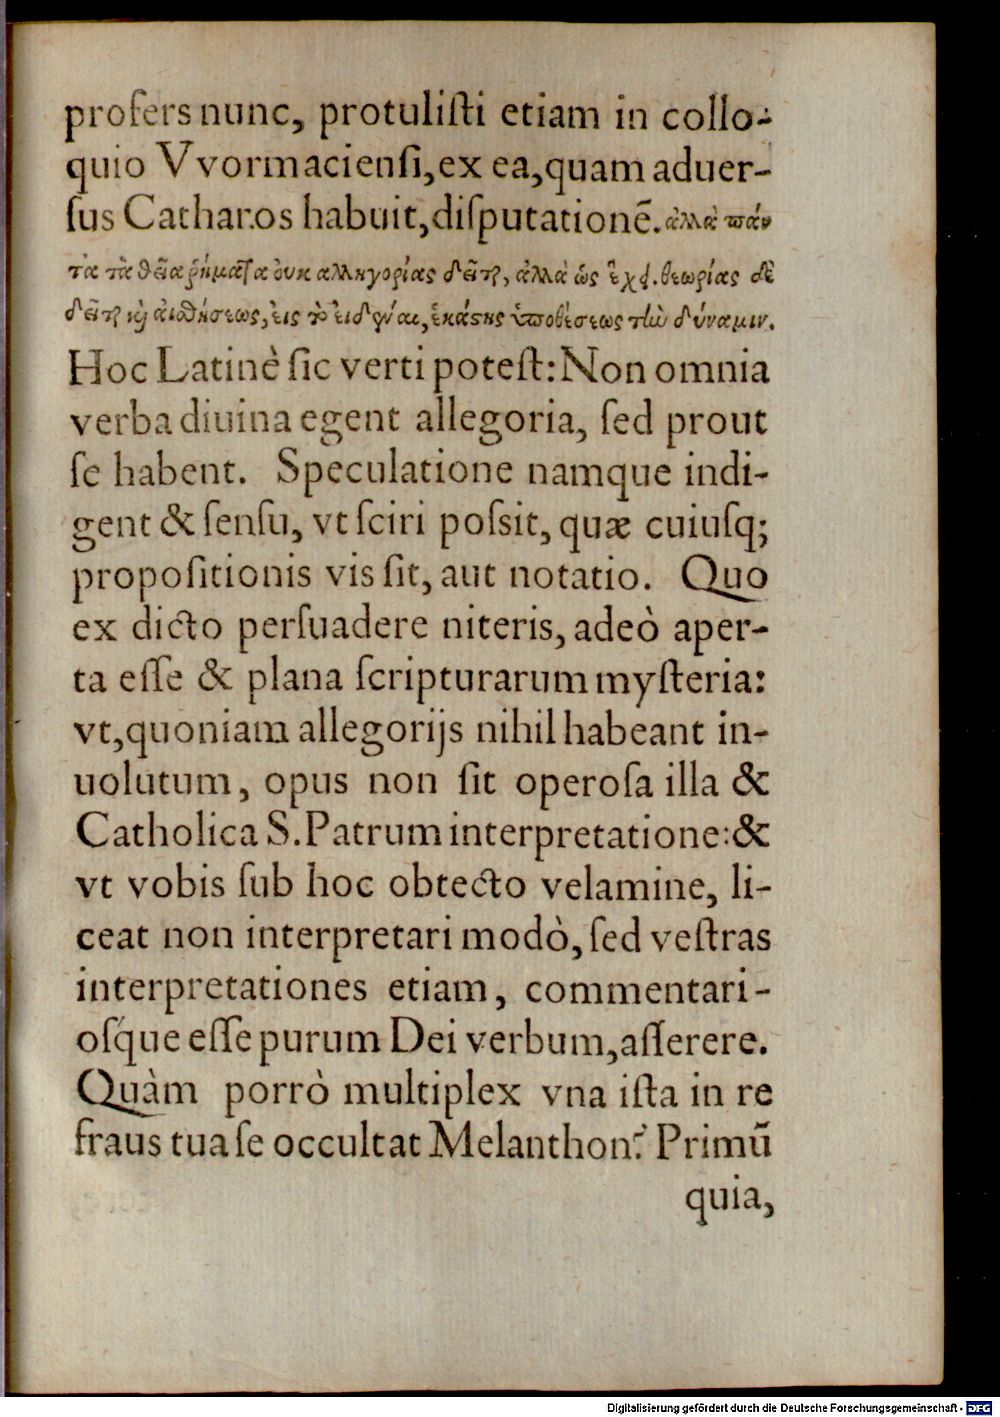 profers nunc, protuliſti etiam in collo-
quio VVormacienſi, ex ea, quam aduer-
ſus Catharos habuit, diſputationē. ἀλλὰ πάν
τα τὰ θεῖα ῥήματα ουκ αλληγορίας δεῖται, ἀλλὰ ὡς ἔχει. θεωρίας δὲ
δεῖται καὶ αἰσθήσεως, εἰς τὸ εἰδέναι, ἑκάστης ὑποθέσεως τὴν δύναμιν.
Hoc Latinè ſic verti poteſt: Non omnia
verba diuina egent allegoria, ſed prout
ſe habent. Speculatione namque indi-
gent & ſenſu, vt ſciri poſsit, quæ cuiuſq;
propoſitionis vis ſit, aut notatio. Quo
ex dicto perſuadere niteris, adeò aper-
ta eſſe & plana ſcripturarum myſteria:
vt, quoniam allegorijs nihil habeant in-
uolutum, opus non ſit operoſa illa &
Catholica S. Patrum interpretatione: &
vt vobis ſub hoc obtecto velamine, li-
ceat non interpretari modò, ſed veſtras
interpretationes etiam, commentari-
oſq́ue eſſe purum Dei verbum, aſſerere.
Quàm porrò multiplex vna iſta in re
fraus tua ſe occultat Melanthon? Primū
quia,
Digitalisierung gefördert durch die Deutsche Forschungsgemeinschaft - DFG